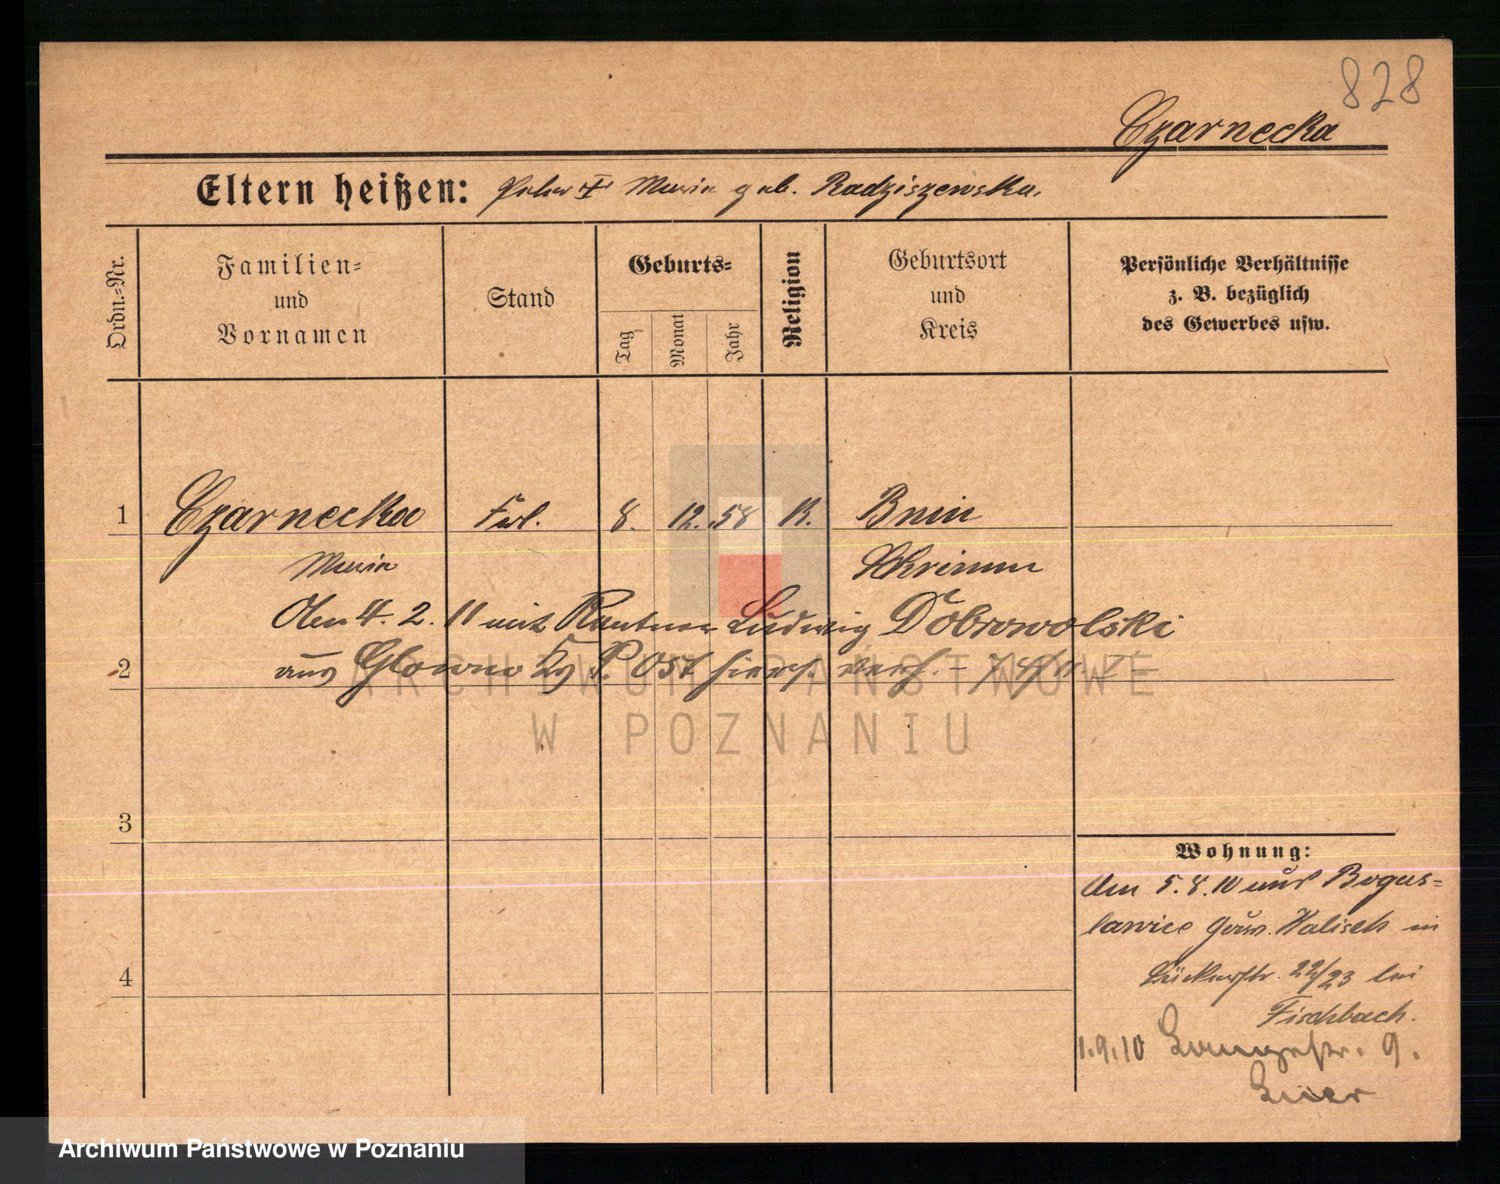 828
Czarnecka
Eltern heißen: Peter † Maria geb. Radziszewska.
Ordn.-Nr.
Familien-
und
Vornamen
Stand
Geburts-
Tag
Monat
Jahr
Religion
Geburtsort
und
Kreis
Persönliche Verhältnisse
z. B. bezüglich
des Gewerbes usw.
1 Czarnecka Frl. 8. 12. 58 K. Bnin
Maria Schrimm
Am 4. 2. 11 mit Ludwig Dobrowolski
2 aus Glowno Kr P. Ost verh.
3
4
Wohnung:
Am 5.8.10 aus Bogus-
lawice Gouv. Kalisch in
22/23 bei
Fischbach.
1.9.10 Langestr. 9.
ARCHIWUM PAŃSTWOWE
W POZNANIU
Archiwum Państwowe w Poznaniu